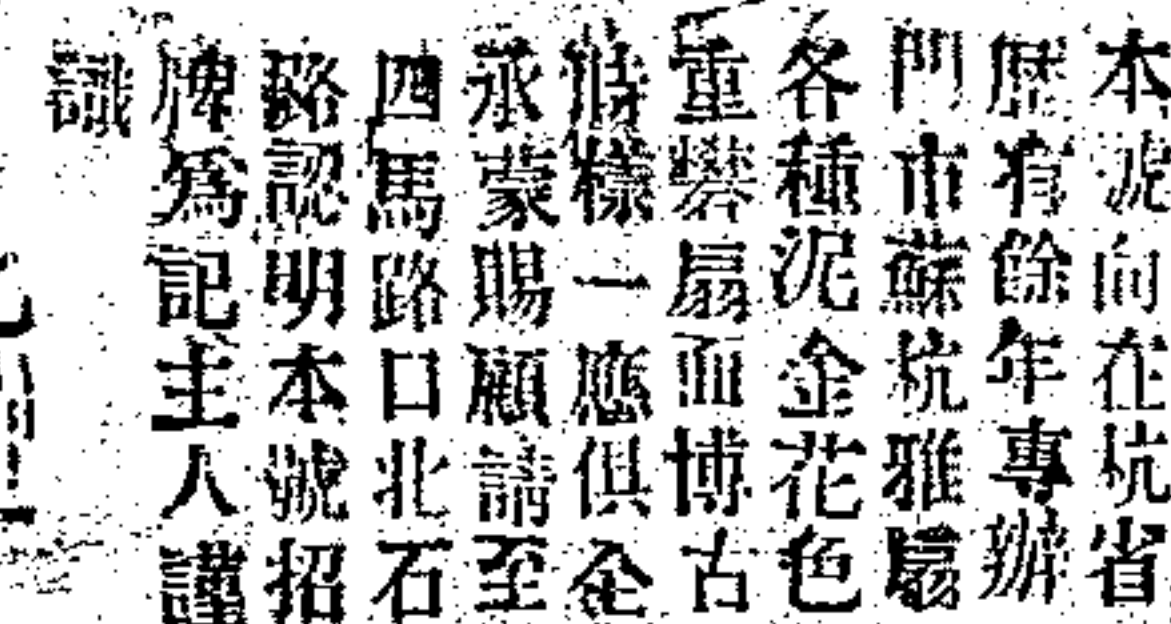 本號向在杭省
歷有餘年專辦
門市蘇杭雅扇
各種泥金花色
重礬扇面博古
時樣一應俱全
承蒙賜顧請至
四馬路口北石
路認明本號招
牌爲記主人謹
識